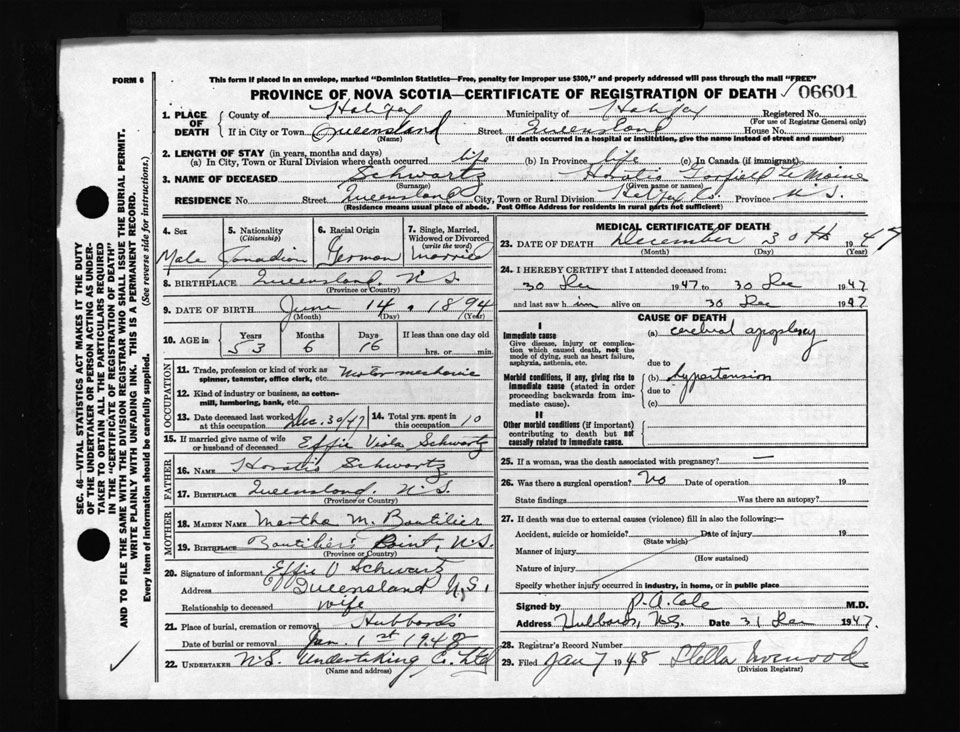 FORM 6
This form if placed in an envelope, marked "Dominion Statistics—Free, penalty for improper use $300," and properly addressed will pass through the mail "FREE"
PROVINCE OF NOVA SCOTIA—CERTIFICATE OF REGISTRATION OF DEATH 06601
1. PLACE OF DEATH
County of Halifax Municipality of Halifax Registered No.
(For use of Registrar General only)
If in City or Town Queensland Street Queensland House No.
(Name) (If death occurred in a hospital or institution, give the name instead of street and number)
2. LENGTH OF STAY (in years, months and days)
(a) In City, Town or Rural Division where death occurred life (b) In Province life (c) In Canada (if immigrant)
3. NAME OF DECEASED Schwartz Horatio Garfield LeMaine
(Surname) (Given name or names)
RESIDENCE No. Street Queensland City, Town or Rural Division Helifex Co. Province N.S.
(Residence means usual place of abode. Post Office Address for residents in rural parts not sufficient)
4. Sex
Male
5. Nationality
(Citizenship)
Canadian
6. Racial Origin
German
7. Single, Married, Widowed or Divorced
(write the word)
Married
8. BIRTHPLACE Queensland N.S.
(Province or Country)
9. DATE OF BIRTH June 14, 1894
(Month) (Day) (Year)
10. AGE in
Years Months Days If less than one day old
53 6 16 hrs. or min.
OCCUPATION
11. Trade, profession or kind of work as
spinner, teamster, office clerk, etc. Motor mechanic
12. Kind of industry or business, as cotton-
mill, lumbering, bank, etc.
13. Date deceased last worked at this occupation Dec. 30/47
14. Total yrs. spent in this occupation 10
15. If married give name of wife or husband of deceased Effie Viola Schwartz
FATHER
16. NAME Horatio Schwartz
17. BIRTHPLACE Queensland, N.S.
(Province or Country)
MOTHER
18. MAIDEN NAME Martha M. Boutilier
19. BIRTHPLACE Boutilier's Point, N.S.
(Province or Country)
20. Signature of informant Effie V Schwartz
Address Queensland N.S.
Relationship to deceased Wife
21. Place of burial, cremation or removal Hubbards
Date of burial or removal Jan. 1st 1948
22. UNDERTAKER N.S. Undertaking Co. Ltd
(Name and address)
MEDICAL CERTIFICATE OF DEATH
23. DATE OF DEATH December 30th 1947
(Month) (Day) (Year)
24. I HEREBY CERTIFY that I attended deceased from:
30 Dec 1947 to 30 Dec 1947
and last saw him alive on 30 Dec 1947
CAUSE OF DEATH
I
Immediate cause
Give disease, injury or complication which caused death, not the mode of dying, such as heart failure, asphyxia, asthenia, etc.
(a) cerebral apoplexy
due to
Morbid conditions, if any, giving rise to immediate cause (stated in order proceeding backwards from immediate cause).
(b) hypertension
due to
(c)
II
Other morbid conditions (if important) contributing to death but not causally related to immediate cause.
25. If a woman, was the death associated with pregnancy? —
26. Was there a surgical operation? No Date of operation 19
State findings Was there an autopsy?
27. If death was due to external causes (violence) fill in also the following:—
Accident, suicide or homicide? Date of injury 19
(State which)
Manner of injury
(How sustained)
Nature of injury
Specify whether injury occurred in industry, in home, or in public place
Signed by P.A. Cole M.D.
Address Hubbards, N.S. Date 31 Dec 1947.
28. Registrar's Record Number
29. Filed Jan 7 1948 Stella
(Division Registrar)
SEC. 46—VITAL STATISTICS ACT MAKES IT THE DUTY
OF THE UNDERTAKER OR PERSON ACTING AS UNDER-
TAKER TO OBTAIN ALL THE PARTICULARS REQUIRED
IN THE "CERTIFICATE OF REGISTRATION OF DEATH"
AND TO FILE THE SAME WITH THE DIVISION REGISTRAR WHO SHALL ISSUE THE BURIAL PERMIT.
WRITE PLAINLY WITH UNFADING INK. THIS IS A PERMANENT RECORD.
Every item of information should be carefully supplied. (See reverse side for instructions.)